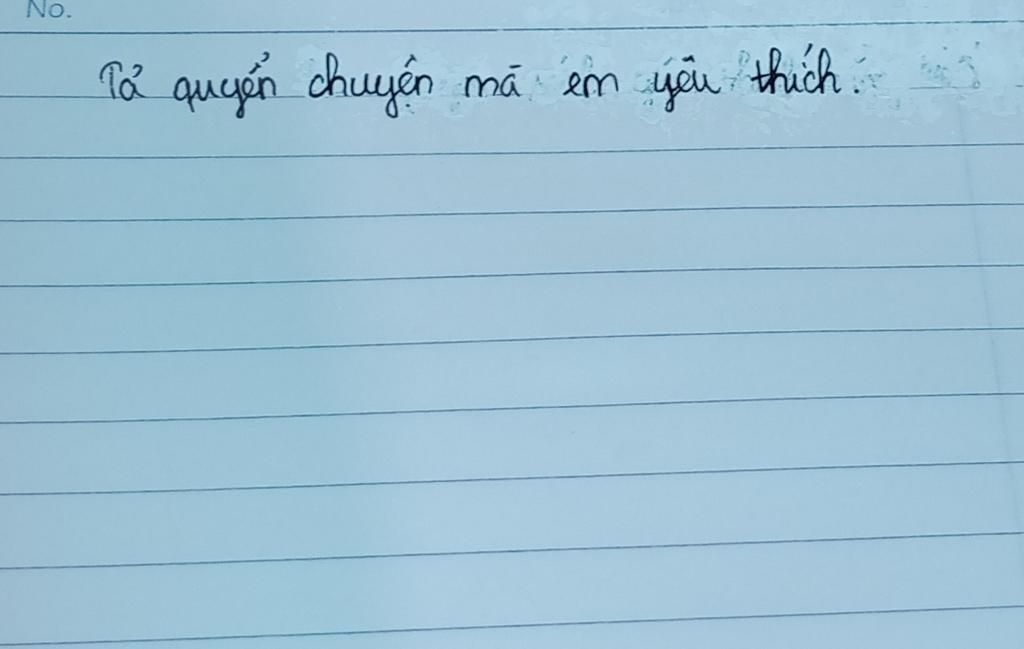 No.
Tả quyển chuyện mà em yêu thích.